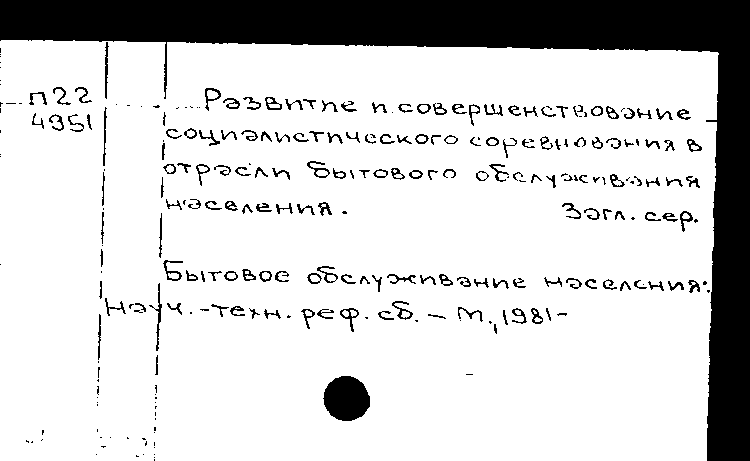 П22
4951
Развитие и совершенствование
социалистического соревнования в
отрасли бытового обслуживания
населения. Загл. сер.
Бытовое обслуживание населения:
Науч.-техн. реф. сб. – М., 1981-